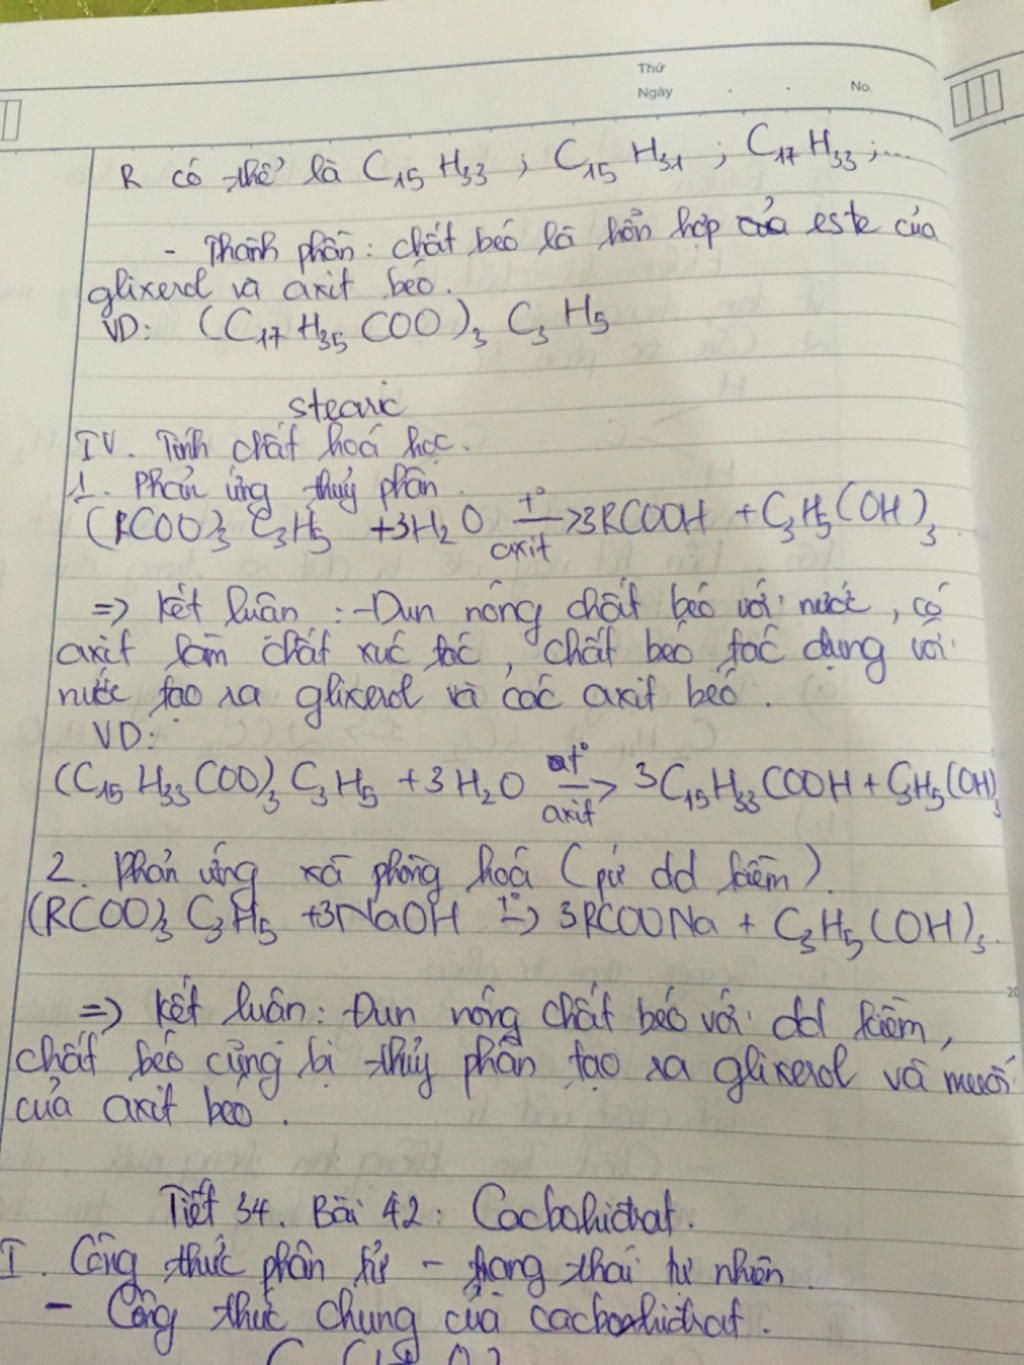 Thứ
Ngày
No.
R có thể là C₁₅H₃₃ ; C₁₅H₃₁ ; C₁₇H₃₃ ;...
- Thành phần: chất béo là hỗn hợp của este của
glixerol và axit béo.
VD: (C₁₇H₃₅COO)₃C₃H₅
stearic
IV. Tính chất hoá học.
1. Phản ứng thuỷ phân.
(RCOO)₃C₃H₅ +3H₂O –t°/axit–> 3RCOOH + C₃H₅(OH)₃.
=> Kết luân : -Đun nóng chất béo với nước, có
axit làm chất xúc tác, chất béo tác dụng với
nước tạo ra glixerol và các axit béo.
VD:
(C₁₅H₃₃COO)₃C₃H₅ +3H₂O –t°/axit–> 3C₁₅H₃₃COOH + C₃H₅(OH)₃
2. Phản ứng xà phòng hoá (pứ dd kiềm).
(RCOO)₃C₃H₅ +3NaOH –t°–> 3RCOONa + C₃H₅(OH)₃.
20
=> Kết luân: Đun nóng chất béo với dd kiềm,
chất béo cũng bị thủy phân tạo ra glixerol và muối
của axit béo.
Tiết 34. Bài 42: Cacbohiđrat.
I. Công thức phân tử - trạng thái tự nhiên.
- Công thức chung của cacbohiđrat.